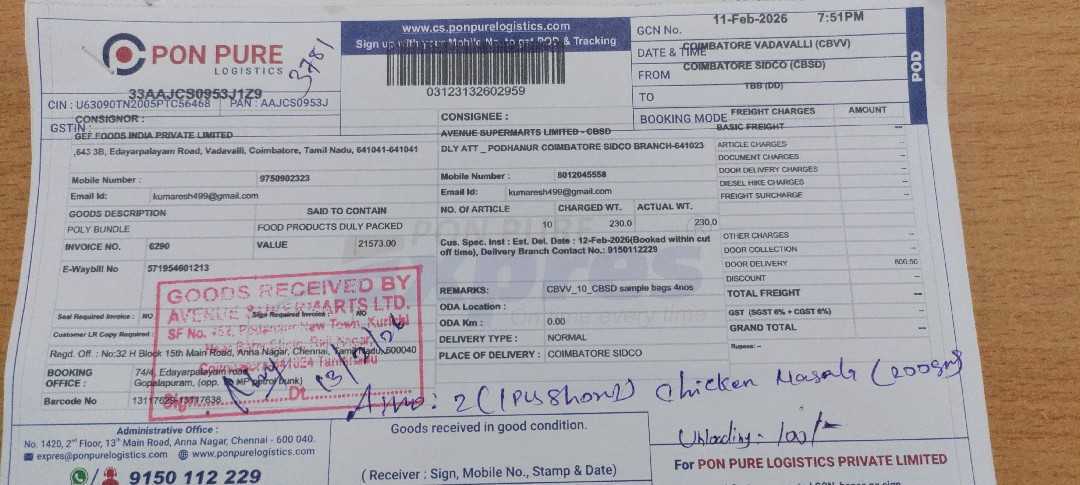 PON PURE
LOGISTICS
3781
33AAJCS0953J1Z9
CIN : U63090TN2005PTC56468 PAN : AAJCS0953J
GSTIN :
www.cs.ponpurelogistics.com
Sign up with your Mobile No. to get POD & Tracking
03123132602959
GCN No.
11-Feb-2026 7:51PM
DATE & TIME
COIMBATORE VADAVALLI (CBVV)
FROM
COIMBATORE SIDCO (CBSD)
TO
TBB (DD)
BOOKING MODE
POD
CONSIGNOR :
GEF FOODS INDIA PRIVATE LIMITED
,643 3B, Edayarpalayam Road, Vadavalli, Coimbatore, Tamil Nadu, 641041-641041
Mobile Number : 9750902323
Email Id: kumaresh499@gmail.com
CONSIGNEE :
AVENUE SUPERMARTS LIMITED - CBSD
DLY ATT _ PODHANUR COIMBATORE SIDCO BRANCH-641023
Mobile Number : 8012045558
Email Id: kumaresh499@gmail.com
FREIGHT CHARGES AMOUNT
BASIC FREIGHT --
ARTICLE CHARGES --
DOCUMENT CHARGES --
DOOR DELIVERY CHARGES --
DIESEL HIKE CHARGES --
FREIGHT SURCHARGE --
OTHER CHARGES --
DOOR COLLECTION --
DOOR DELIVERY 600.50
DISCOUNT --
TOTAL FREIGHT --
GST (SGST 6% + CGST 6%) --
GRAND TOTAL --
Rupees: --
GOODS DESCRIPTION SAID TO CONTAIN
POLY BUNDLE FOOD PRODUCTS DULY PACKED
INVOICE NO. 6290 VALUE 21573.00
E-Waybill No 571954601213
NO. OF ARTICLE CHARGED WT. ACTUAL WT.
10 230.0 230.0
Cus. Spec. Inst : Est. Del. Date : 12-Feb-2026(Booked within cut
off time), Delivery Branch Contact No.: 9150112229
PON PURE
REMARKS: CBVV_10_CBSD sample bags 4nos
ODA Location :
ODA Km : 0.00
DELIVERY TYPE : NORMAL
PLACE OF DELIVERY : COIMBATORE SIDCO
Seal Required Invoice : NO Sign Required Invoice : NO
Customer LR Copy Required :
Regd. Off. : No:32 H Block 15th Main Road, Anna Nagar, Chennai, Tamil Nadu,600040
BOOKING OFFICE : 74/4, Edayarpalayam road,
Gopalapuram, (opp. MP petrol bunk)
Barcode No 13117629-13117638
GOODS RECEIVED BY
AVENUE SUPERMARTS LTD.
SF No. Podanur New Town, Kurichi
Coimbatore 641024 Tamilnadu
Sign Dt
13/2/26
2 (1Pcs Short) Chicken Masala (200gm)
Unloading - 100/-
Administrative Office :
No. 1420, 2nd Floor, 13th Main Road, Anna Nagar, Chennai - 600 040.
expres@ponpurelogistics.com www.ponpurelogistics.com
9150 112 229
Goods received in good condition.
( Receiver : Sign, Mobile No., Stamp & Date)
For PON PURE LOGISTICS PRIVATE LIMITED